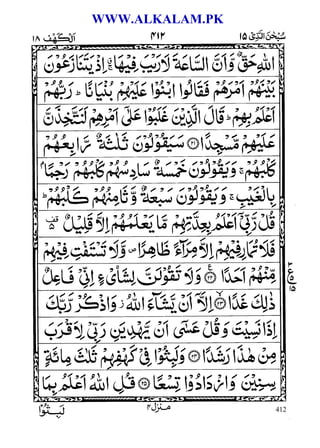 WWW.ALKALAM.PK
سُبْحٰنَ الَّذِیْۤ ۱۵ ۴۱۲ اَلْكَهْف ۱۸
اللّٰهِ حَقٌّ وَّ اَنَّ السَّاعَةَ لَا رَیْبَ فِیْهَا ۚ اِذْ یَتَنَازَعُوْنَ
بَیْنَهُمْ اَمْرَهُمْ فَقَالُوا ابْنُوْا عَلَیْهِمْ بُنْیَانًا ؕ رَبُّهُمْ
اَعْلَمُ بِهِمْ ؕ قَالَ الَّذِیْنَ غَلَبُوْا عَلٰۤى اَمْرِهِمْ لَنَتَّخِذَنَّ
عَلَیْهِمْ مَّسْجِدًا ۲۱ سَیَقُوْلُوْنَ ثَلٰثَةٌ رَّابِعُهُمْ
كَلْبُهُمْ ۚ وَ یَقُوْلُوْنَ خَمْسَةٌ سَادِسُهُمْ كَلْبُهُمْ رَجْمًۢا
بِالْغَیْبِ ۚ وَ یَقُوْلُوْنَ سَبْعَةٌ وَّ ثَامِنُهُمْ كَلْبُهُمْ ؕ
قُلْ رَّبِّیْۤ اَعْلَمُ بِعِدَّتِهِمْ مَّا یَعْلَمُهُمْ اِلَّا قَلِیْلٌ
فَلَا تُمَارِ فِیْهِمْ اِلَّا مِرَآءً ظَاهِرًا ۪ وَّ لَا تَسْتَفْتِ فِیْهِمْ
مِّنْهُمْ اَحَدًا ۲۲ وَ لَا تَقُوْلَنَّ لِشَایْءٍ اِنِّیْ فَاعِلٌ
ذٰلِكَ غَدًا ۲۳ اِلَّاۤ اَنْ یَّشَآءَ اللّٰهُ ؗ وَ اذْكُرْ رَّبَّكَ
اِذَا نَسِیْتَ وَ قُلْ عَسٰۤى اَنْ یَّهْدِیَنِ رَبِّیْ لِاَقْرَبَ
مِنْ هٰذَا رَشَدًا ۲۴ وَ لَبِثُوْا فِیْ كَهْفِهِمْ ثَلٰثَ مِائَةٍ
سِنِیْنَ وَ ازْدَادُوْا تِسْعًا ۲۵ قُلِ اللّٰهُ اَعْلَمُ بِمَا
منزل ۴
لَبِثُوْا
412